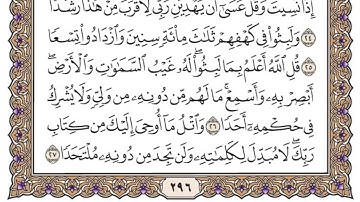 إِذَا نَسِيتَ وَقُلْ عَسَىٰٓ أَن يَهْدِيَنِ رَبِّي لِأَقْرَبَ مِنْ هَٰذَا رَشَدًا
۝٢٤ وَلَبِثُوا۟ فِي كَهْفِهِمْ ثَلَٰثَ مِا۟ئَةٍ سِنِينَ وَٱزْدَادُوا۟ تِسْعًا
۝٢٥ قُلِ ٱللَّهُ أَعْلَمُ بِمَا لَبِثُوا۟ ۖ لَهُۥ غَيْبُ ٱلسَّمَٰوَٰتِ وَٱلْأَرْضِ ۖ
أَبْصِرْ بِهِۦ وَأَسْمِعْ ۚ مَا لَهُم مِّن دُونِهِۦ مِن وَلِيٍّ وَلَا يُشْرِكُ
فِي حُكْمِهِۦٓ أَحَدًا ۝٢٦ وَٱتْلُ مَآ أُوحِيَ إِلَيْكَ مِن كِتَابِ
رَبِّكَ ۖ لَا مُبَدِّلَ لِكَلِمَٰتِهِۦ وَلَن تَجِدَ مِن دُونِهِۦ مُلْتَحَدًا ۝٢٧
٢٩٦